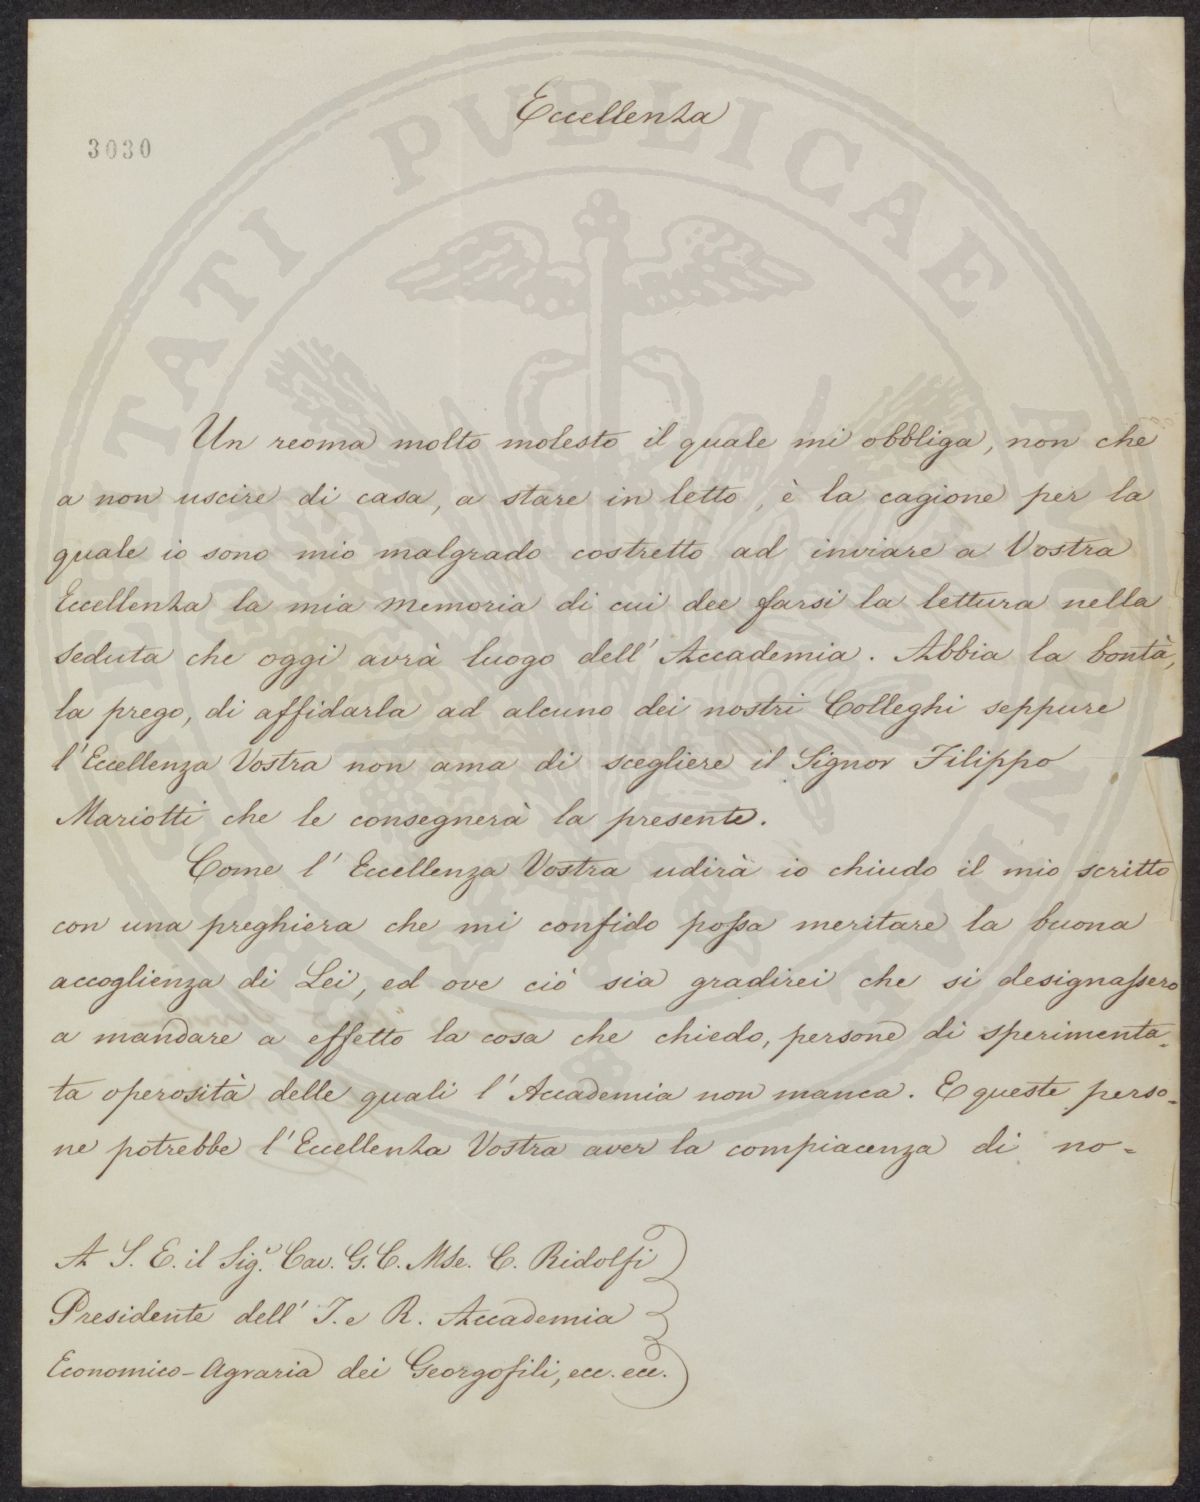 Eccellenza
3030
Un reoma molto molesto il quale mi obbliga, non che
a non uscire di casa, a stare in letto, è la cagione per la
quale io sono mio malgrado costretto ad inviare a Vostra
Eccellenza la mia memoria di cui dee farsi la lettura nella
seduta che oggi avrà luogo dell' Accademia. Abbia la bontà,
la prego, di affidarla ad alcuno dei nostri Colleghi seppure
l'Eccellenza Vostra non ama di scegliere il Signor Filippo
Mariotti che le consegnerà la presente.
Come l' Eccellenza Vostra udirà io chiudo il mio scritto
con una preghiera che mi confido possa meritare la buona
accoglienza di Lei, ed ove ciò sia gradirei che si designassero
a mandare a effetto la cosa che chiedo, persone di sperimenta=
ta operosità delle quali l' Accademia non manca. E queste perso=
ne potrebbe l'Eccellenza Vostra aver la compiacenza di no=
A S. E. il Sig.r Cav. G. C. Mse. C. Ridolfi
Presidente dell' I. e R. Accademia
Economico-Agraria dei Georgofili, ecc. ecc.
PVBLICAE